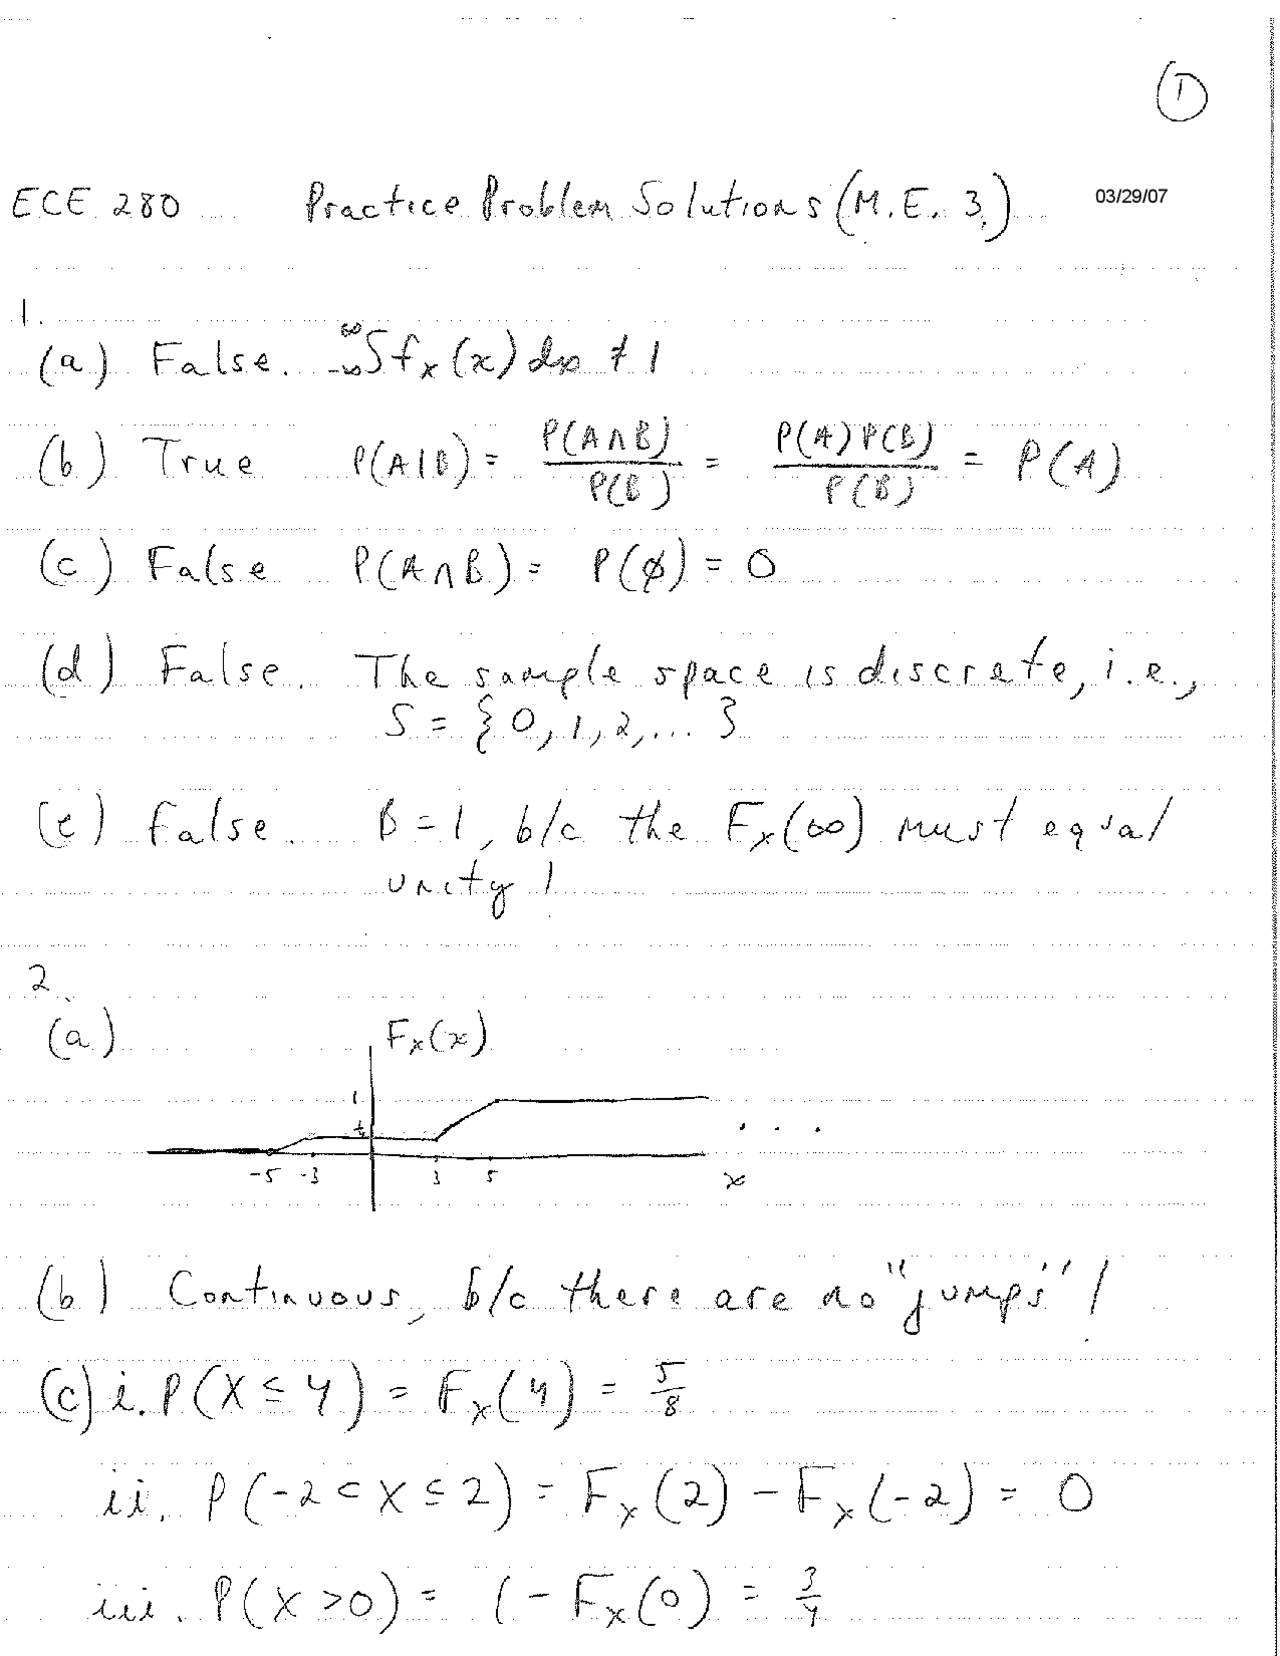 1
ECE 280 Practice Problem Solutions (M.E. 3.) 03/29/07
1.
(a) False. -∞∫∞ fx(x) dx ≠ 1
(b) True P(A|B) = P(A∩B)/P(B) = P(A)P(B)/P(B) = P(A)
(c) False P(A∩B) = P(ø) = 0
(d) False. The sample space is discrete, i.e.,
S = {0, 1, 2, ... }
(e) False. B = 1, b/c the Fx(∞) must equal
unity!
2.
(a) Fx(x)
1
-5 -3 3 5 x
. . .
(b) Continuous, b/c there are no "jumps"!
(c) i. P(X ≤ 4) = Fx(4) = 5/8
ii. P(-2 < X ≤ 2) = Fx(2) - Fx(-2) = 0
iii. P(X > 0) = 1 - Fx(0) = 3/4